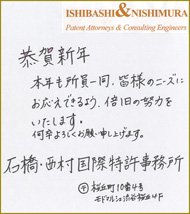 ISHIBASHI & NISHIMURA
Patent Attorneys & Consulting Engineers
恭賀新年
本年も所員一同、皆様のニーズに
お応えできるよう、倍旧の努力を
いたします。
何卒よろしくお願い申し上げます。
石橋・西村国際特許事務所
桜丘町10番4号
渋谷桜丘4F